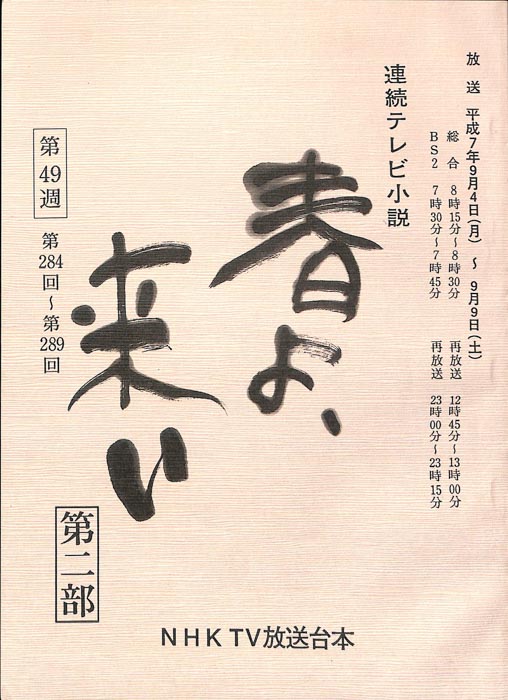 放送 平成7年9月4日(月) ～ 9月9日(土)
総合 8時15分～8時30分 再放送 12時45分～13時00分
BS2 7時30分～7時45分 再放送 23時00分～23時15分
連続テレビ小説
春よ、
来い
第49週
第284回～第289回
第二部
NHK TV放送台本